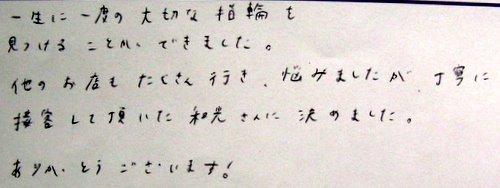 一生に一度の大切な指輪を
見つけることができました。
他のお店もたくさん行き、悩みましたが、丁寧に
接客して頂いた和光さんに決めました。
ありがとうございます!